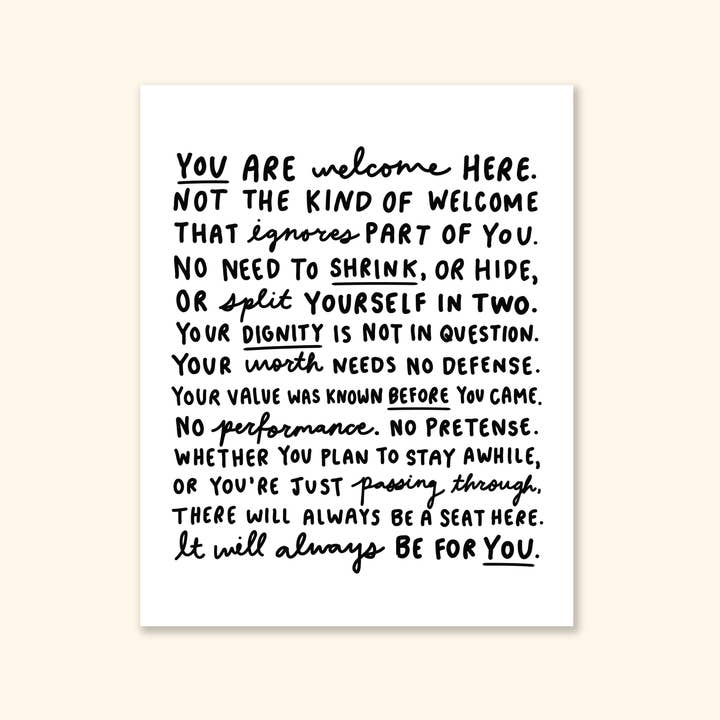 YOU ARE welcome HERE.
NOT THE KIND OF WELCOME
THAT ignores PART OF YOU.
NO NEED TO SHRINK, OR HIDE,
OR split YOURSELF IN TWO.
YOUR DIGNITY IS NOT IN QUESTION.
YOUR worth NEEDS NO DEFENSE.
YOUR VALUE WAS KNOWN BEFORE YOU CAME.
NO performance. NO PRETENSE.
WHETHER YOU PLAN TO STAY AWHILE,
OR YOU'RE JUST passing through,
THERE WILL ALWAYS BE A SEAT HERE.
It will always BE FOR YOU.